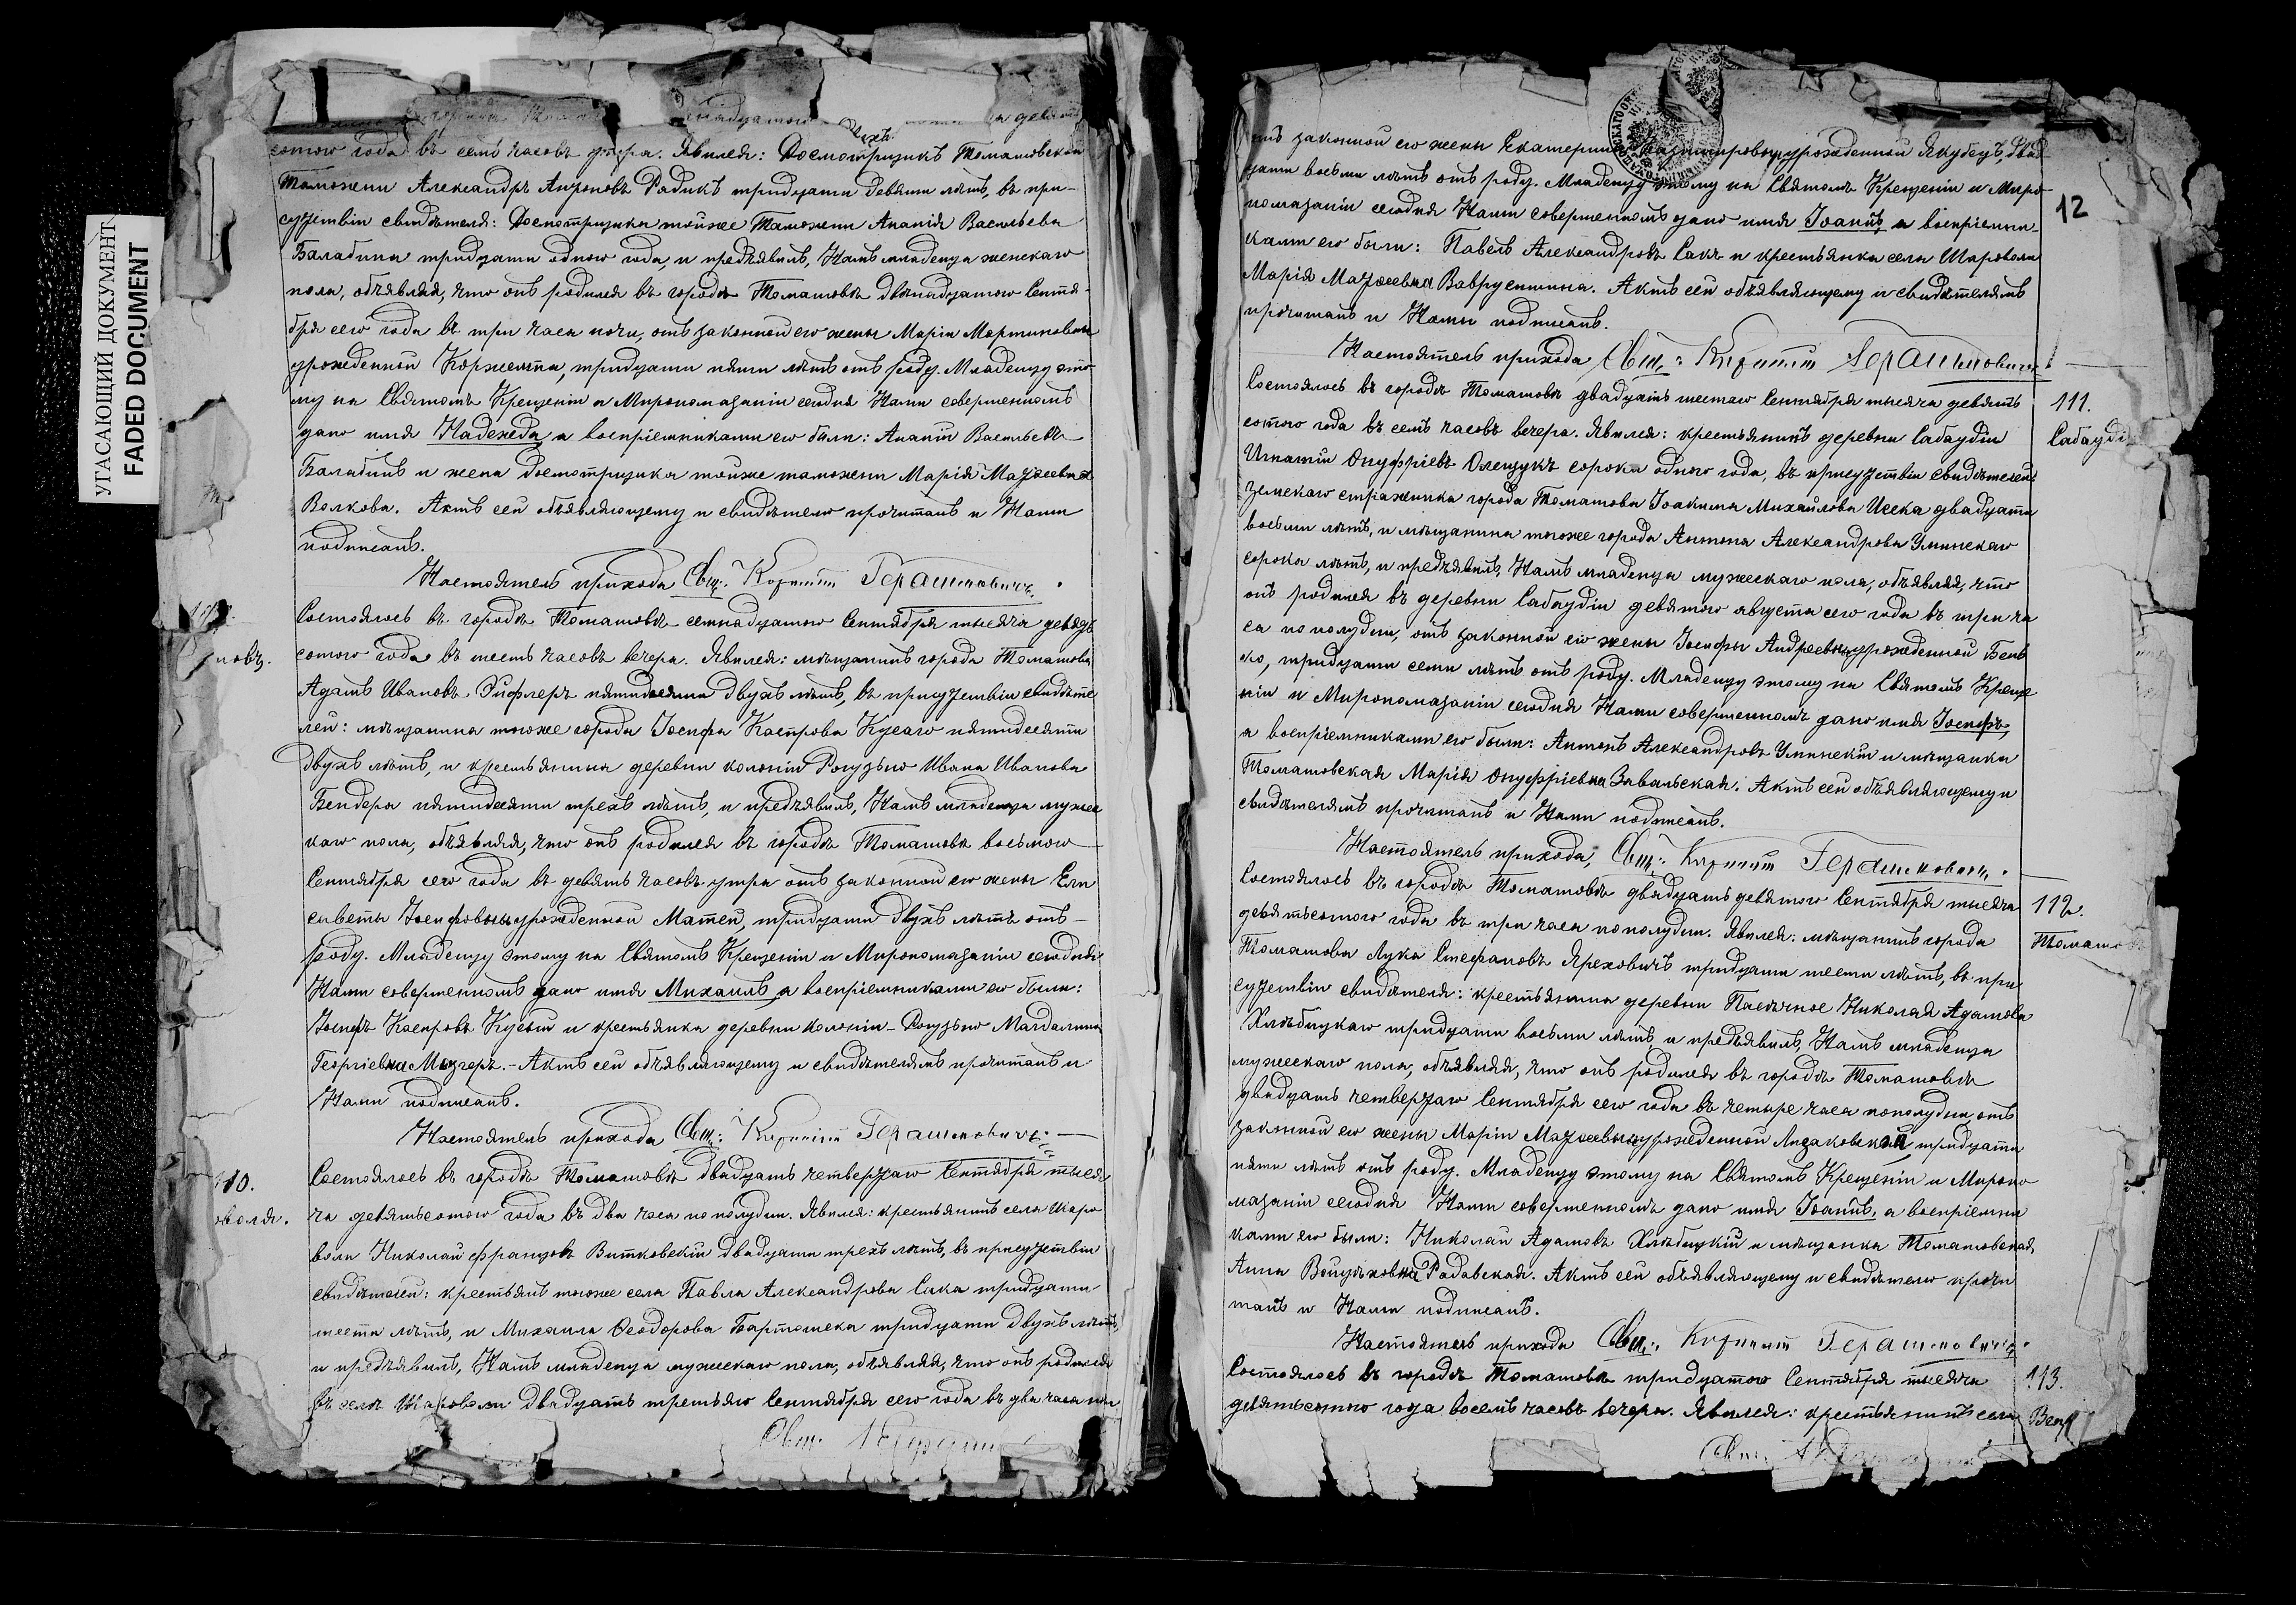 УГАСАЮЩИЙ ДОКУМЕНТ
FADED DOCUMENT
сотого года въ семь часовъ утра. Явился: Досмотрщикъ Томашовской
Таможни Александръ Антоновъ Радикъ тридцати девяти лѣтъ, въ при-
сутствіи свидѣтеля: Досмотрщика тойже Таможни Ананія Васильева
Баладина тридцати одного года, и предъявилъ Намъ младенца женскаго
пола, объявляя, что онъ родился въ городѣ Томашовѣ двѣнадцатого Сентя-
бря сего года въ три часа ночи, отъ законной его жены Маріи Мартиновны
урожденной Коржемпа, тридцати пяти лѣтъ отъ роду. Младенцу это-
му на Святомъ Крещеніи и Мѵропомазаніи сегодня Нами совершенномъ
дано имя Надежда а воспріемниками его были: Ананій Васильевъ
Баладинъ и жена досмотрщика тойже таможни Марія Матѳеевна
Волкова. Актъ сей объявляющему и свидѣтелю прочитанъ и Нами
подписанъ.
Настоятель прихода Свщ. Кириллъ Герашковичъ.
Состоялось въ городѣ Томашовѣ семнадцатого Сентября тысяча девять
сотого года въ шесть часовъ вечера. Явился: мѣщанинъ города Томашова
новъ.
Адамъ Ивановъ Эйфлеръ пятидесяти двухъ лѣтъ, въ присутствіи свидѣте
лей: мѣщанина тогоже города Іосифа Каспрова Кусаго пятидесяти
двухъ лѣтъ, и крестьянина деревни колоніи Рогузьно Ивана Иванова
Бендера пятидесяти трехъ лѣтъ, и предъявилъ Намъ младенца мужес
каго пола, объявляя, что онъ родился въ городѣ Томашовѣ восьмого
Сентября сего года въ девять часовъ утра отъ законной его жены Ели
саветы Іосифовны урожденной Матей, тридцати двухъ лѣтъ отъ
роду. Младенцу этому на Святомъ Крещеніи и Мѵропомазаніи сегодня
Нами совершенномъ дано имя Михаилъ, а воспріемниками его были:
Іосифъ Каспровъ Кусый и крестьянка деревни колоніи-Рогузьно Магдалина
Георгіевна Мецгеръ.- Актъ сей объявляющему и свидѣтелямъ прочитанъ и
Нами подписанъ.
Настоятель прихода Свщ. Кириллъ Герашковичъ.
110.
Состоялось въ городѣ Томашовѣ двадцать четвертаго Сентября тыся
воля.
ча девятьсотого года въ два часа по полудни. Явился: крестьянинъ села Шаро
воли Николай Францовъ Витковскій двадцати трехъ лѣтъ, въ присутствіи
свидѣтелей: крестьянъ тогоже села Павла Александрова Сака тридцати
шести лѣтъ, и Михаила Ѳеодорова Бартошека тридцати двухъ лѣтъ,
и предъявилъ, Намъ младенца мужескаго пола, объявляя, что онъ родился
въ селѣ Шароволи двадцать третьяго Сентября сего года въ два часа
Свщ.
12
отъ законной его жены Екатерины Казиміровны урожденной Якубецъ, двад
цати восьми лѣтъ отъ роду. Младенцу этому на Святомъ Крещеніи и Мѵро
помазаніи сегодня Нами совершенномъ дано имя Іоаннъ а воспріемни
ками его были: Павелъ Александровъ Сакъ и крестьянка села Шароволи
Марія Матѳеевна Ваврусишина. Актъ сей объявляющему и свидѣтелямъ
прочитанъ и Нами подписанъ.
Настоятель прихода Свщ. Кириллъ Герашковичъ.
111.
Состоялось въ городѣ Томашовѣ двадцать шестаго Сентября тысяча девять
Сабаудія
сотого года въ семь часовъ вечера. Явился: крестьянинъ деревни Сабаудіи
Игнатій Онуфріевъ Олещукъ сорока одного года, въ присутствіи свидѣтелей:
земскаго стражника города Томашова Іоакима Михайлова Исека двадцати
восьми лѣтъ, и мѣщанина тогоже города Антона Александрова Уминскаго
сорока лѣтъ, и предъявилъ, Намъ младенца мужескаго пола, объявляя, что
онъ родился въ деревни Сабаудіи девятого августа сего года въ три ча
са по полудни, отъ законной его жены Іосифы Андреевны урожденной Бень
ко, тридцати семи лѣтъ отъ роду. Младенцу этому на Святомъ Креще
ніи и Мѵропомазаніи сегодня Нами совершенномъ дано имя Іосифъ,
а воспріемниками его были: Антонъ Александровъ Уминскій и мѣщанка
Томашовская Марія Онуфріевна Завальская. Актъ сей объявляющему и
свидѣтелямъ прочитанъ и Нами подписанъ.
Настоятель прихода, Свщ. Кириллъ Герашковичъ.
112.
Состоялось въ городѣ Томашовѣ двадцать девятого Сентября тысяча
Томашо
девятьсотого года въ три часа по полудни. Явился: мѣщанинъ города
Томашова Лука Стефановъ Яреховичъ тридцати шести лѣтъ, въ при
сутствіи свидѣтеля: крестьянина деревни Пасѣчное Николая Адамова
Хлѣбицкаго тридцати восьми лѣтъ и предъявилъ, Намъ младенца
мужескаго пола, объявляя, что онъ родился въ городѣ Томашовѣ
двадцать четвертаго Сентября сего года въ четыре часа пополудни, отъ
законной его жены Маріи Матѳеевны урожденной Лизаковской тридцати
пяти лѣтъ отъ роду. Младенцу этому на Святомъ Крещеніи и Мѵропо
мазаніи сегодня Нами совершенномъ дано имя Іоаннъ, а воспріемни
ками его были: Николай Адамовъ Хлѣбицкій и мѣщанка Томашовская,
Анна Войцѣховна Радавская. Актъ сей объявляющему и свидѣтелю прочи
танъ и Нами подписанъ.
Настоятель прихода Свщ. Кириллъ Герашковичъ.
113.
Состоялось въ городѣ Томашовѣ тридцатого Сентября тысяча
девятьсотого года восемь часовъ вечера. Явился: крестьянинъ села
Свщ.